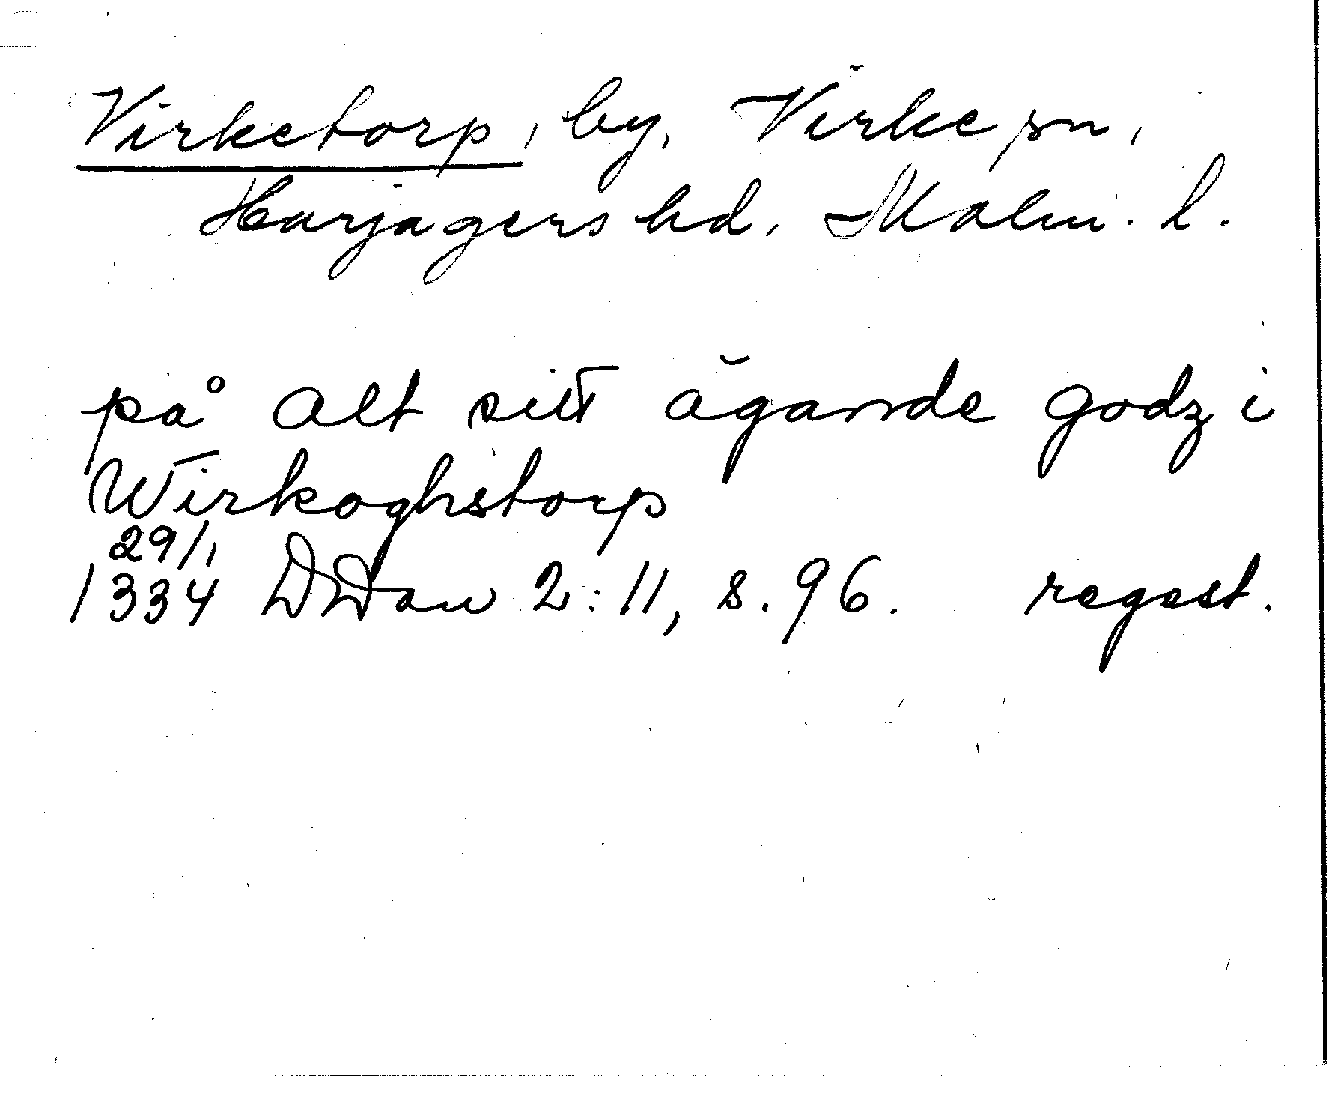 Virketorp, by, Virke sn,
Harjagers hd, Malm. l.
på alt sitt ägande godz i
Wirkoghstorp
29/1
1334 DDan 2:11, s. 96. regest.